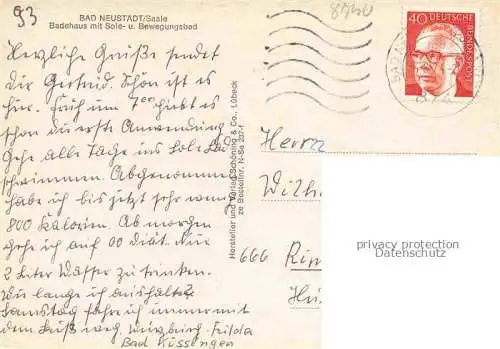 93
8740
BAD NEUSTADT/Saale
Badehaus mit Sole- u. Bewegungsbad
40
DEUTSCHE BUNDESPOST
Herzliche Grüße sendet
dir Gertrud. Schön ist es
hier. Früh um 7 00 gibt es
schon die erste Anwendung
Gehe alle Tage ins Sole Bad
schwimmen. Abgenommen
habe ich bis jetzt sehr wenig
800 Kalorien. Ab morgen
gehe ich auf 00 Diät. Nur
2 Liter Wasser zu trinken.
Wie lange ich aushalte?
Samstag fahre ich immer mit
dem Fuß weg. Würzburg - Fulda
Bad Kissengen
Hersteller und Verlag Schöning & Co., Lübeck
Bestellnr. N-Sa 237-f
Herrn
Wilh
666 Rin
privacy protection
Datenschutz